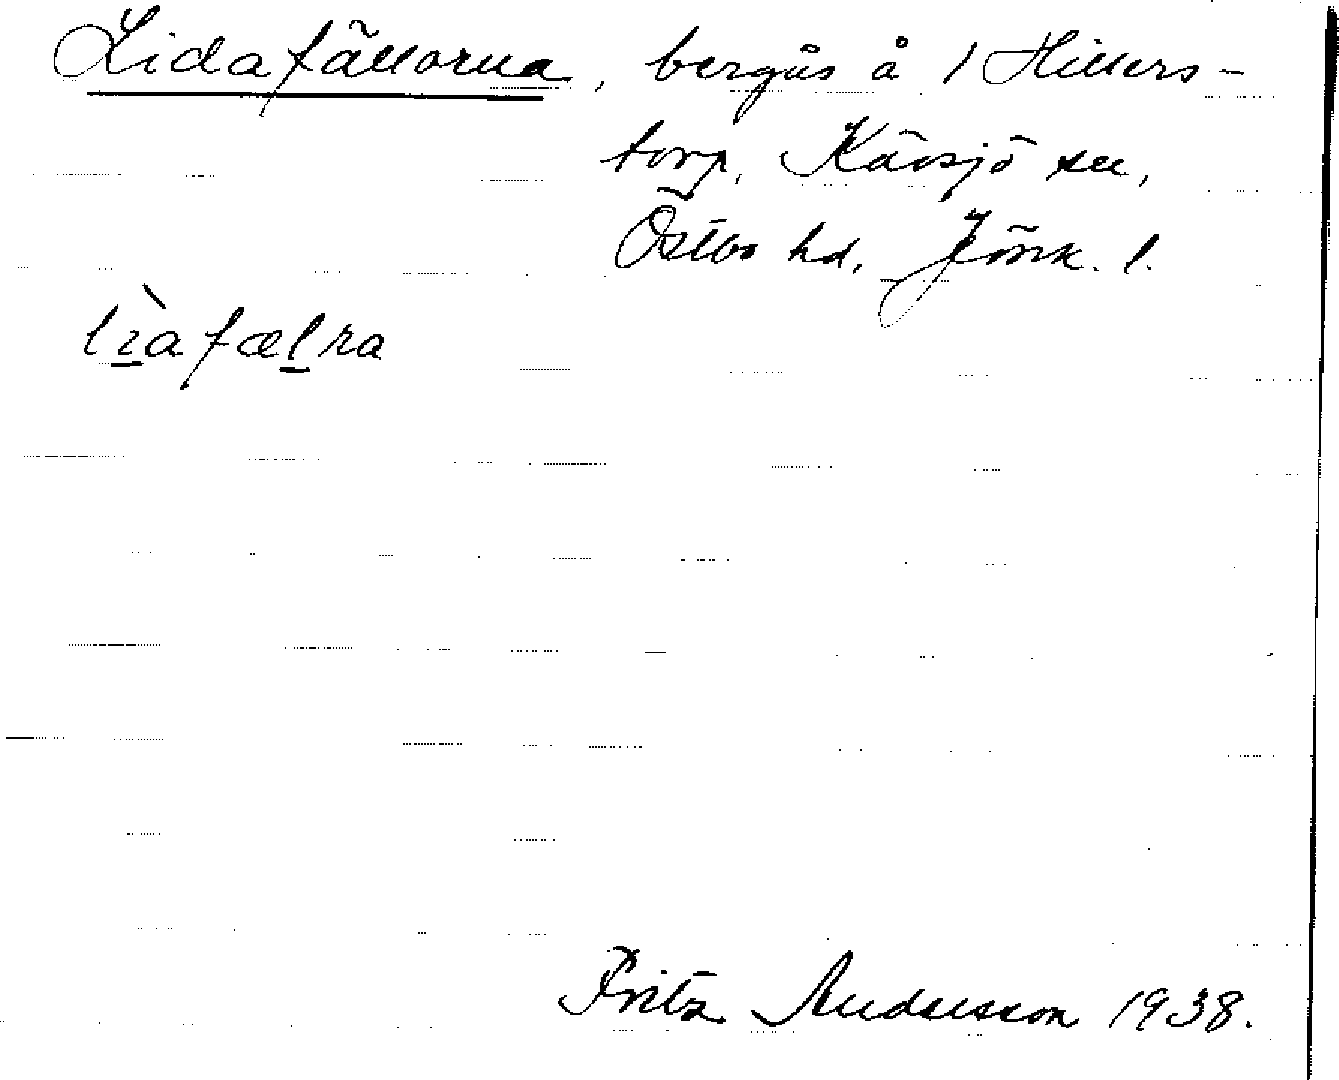 Lidafällorna, bergås å 1 Hillers-
torp, Kävsjö sn,
Östbo hd, Jönk. l.
lìafælra
Fritz Andersson 1938.